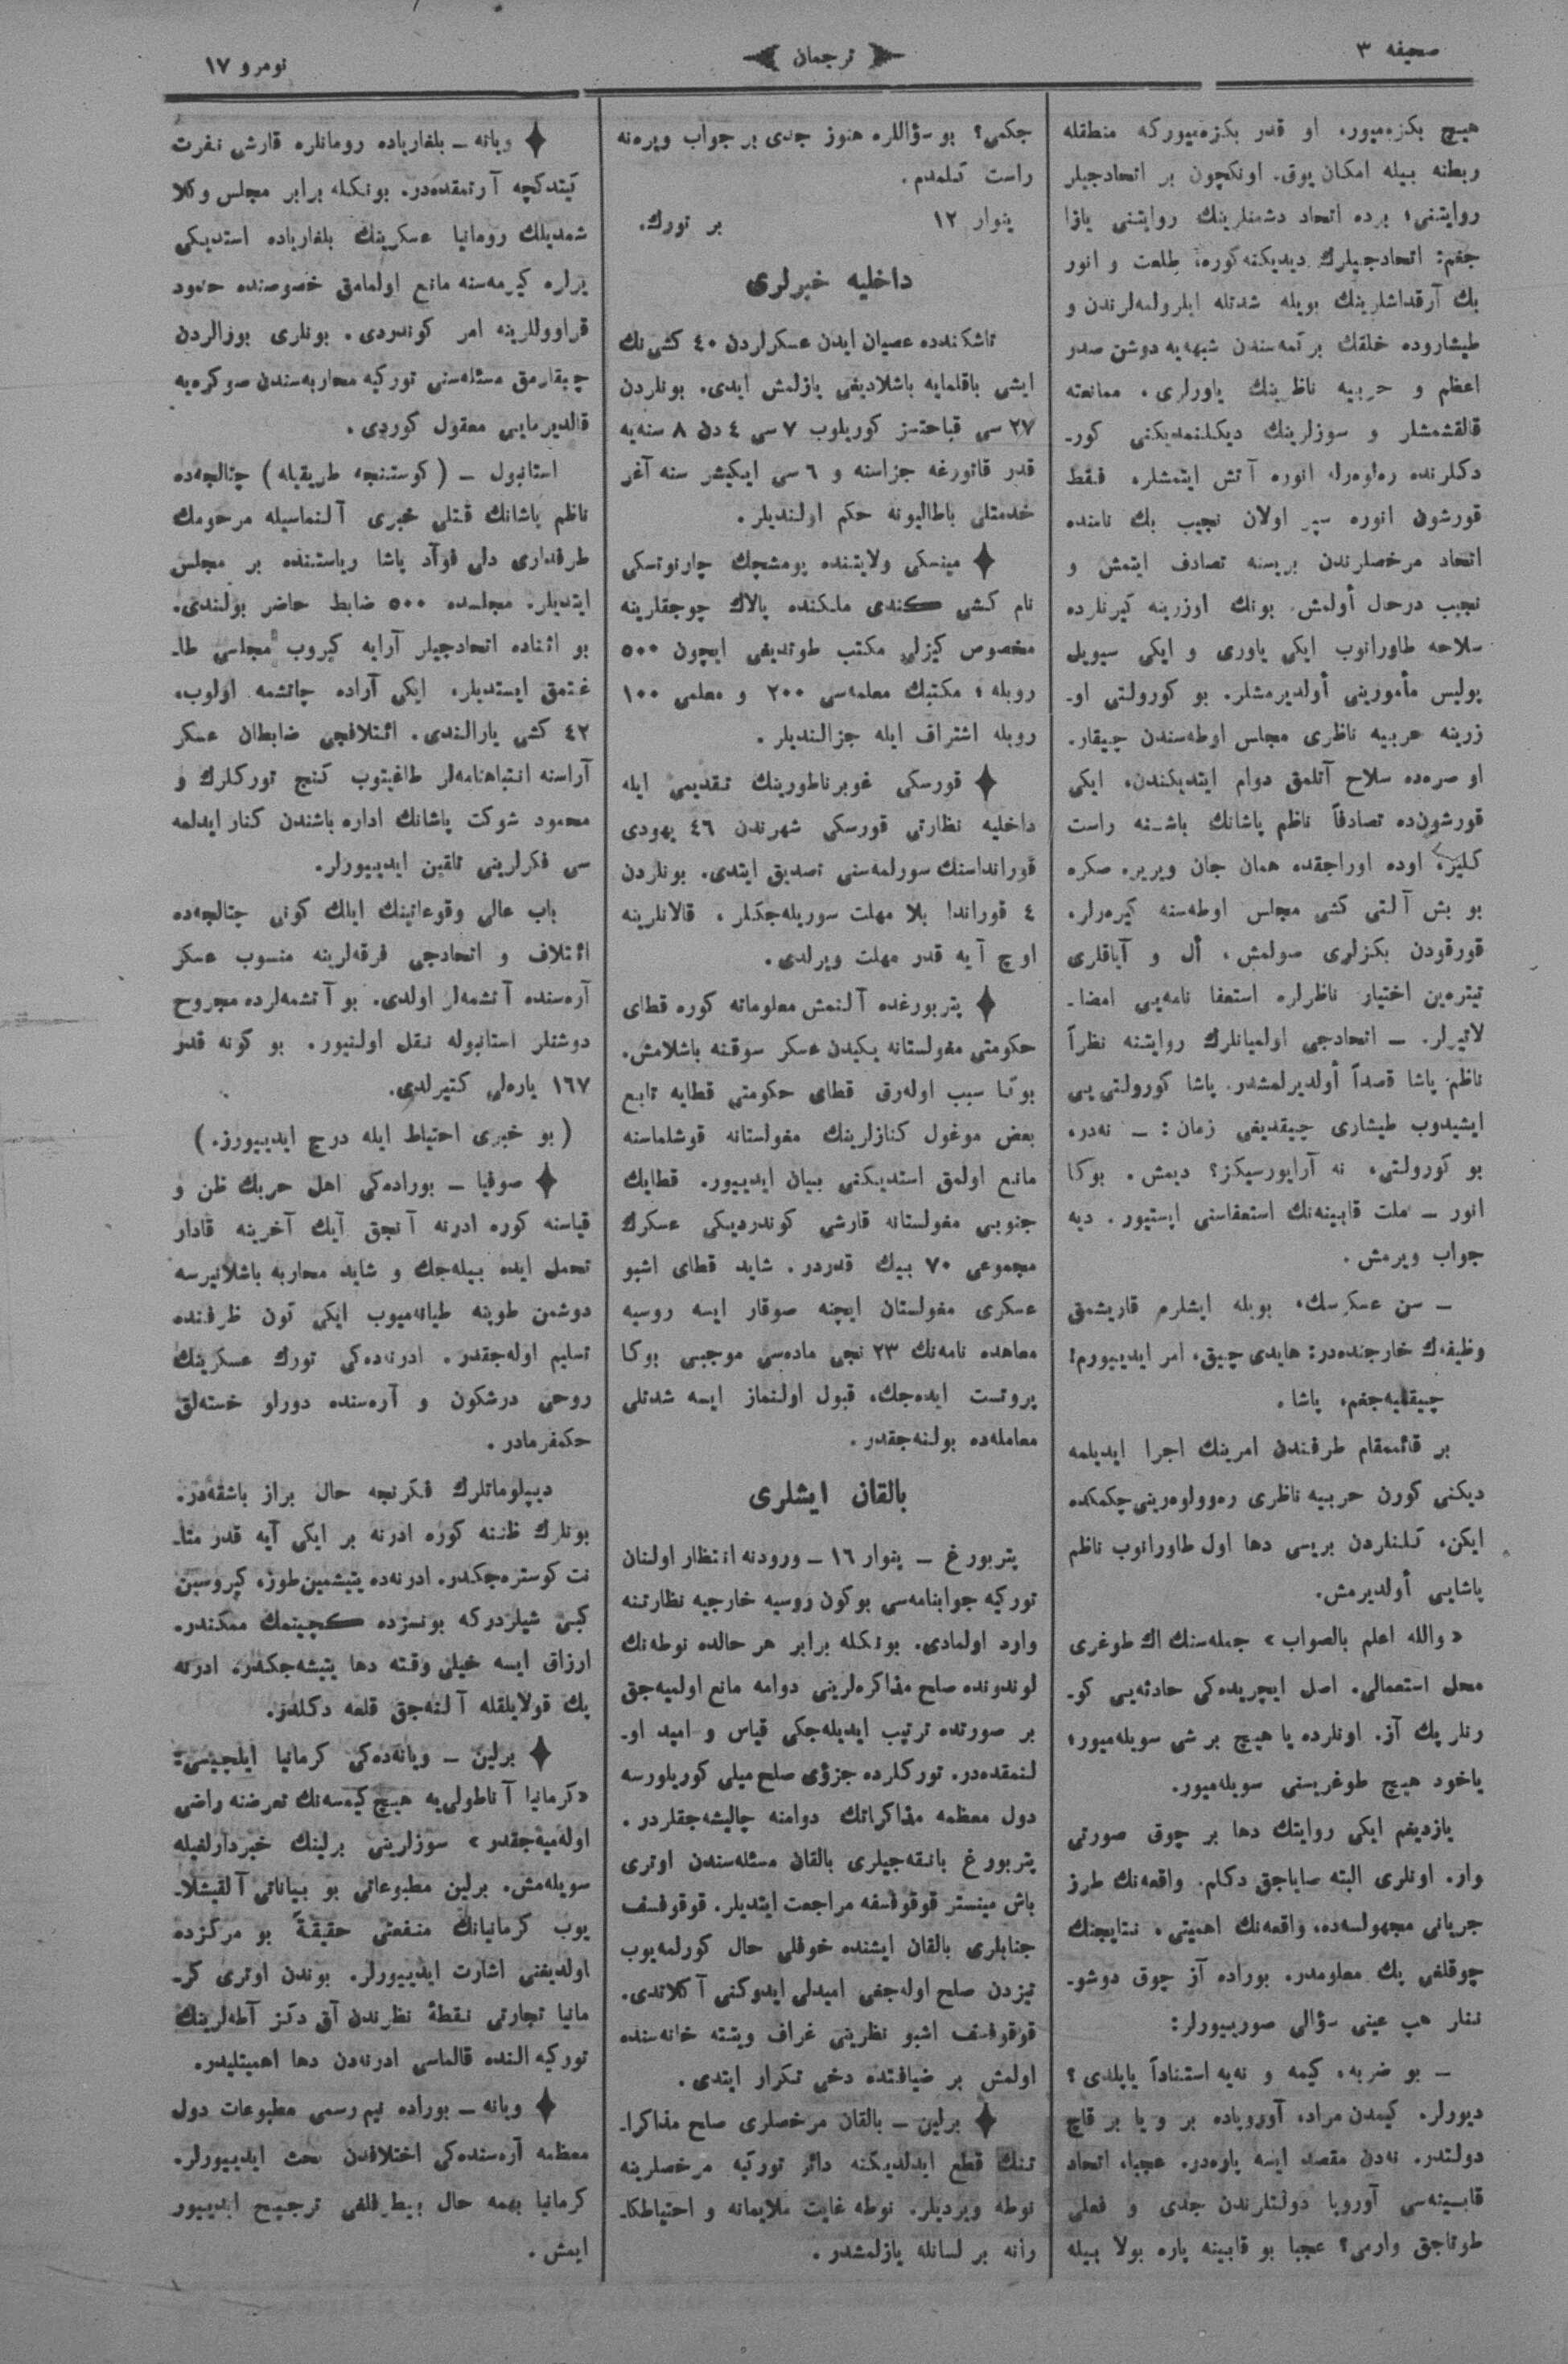 صحیفه ٣
ترجمان
نومرو ١٧
هیچ بکزه‌میور، او قدر بکزه‌میورکه منطقله
ربطنه بیله امکان یوق. اونکچون بر اتحادجیلر
روایتنی؛ برده اتحاد دشمنلرینك روایتنی یازا
جغم: اتحادجیلرك دیدیکنه کوره، طلعت و انور
بك آرقداشلرینك بویله شدتله ایلرولمه‌لرندن و
طیشاروده خلقك برتمه‌سندن شبهه‌یه دوشن صدر
اعظم و حربیه ناظرینك یاورلری، ممانعته
قالقشمشلر و سوزلرینك دیکلنمدیکنی کور-
دکلرنده ره‌ولوه‌رله انوره آتش ایتمشلر، فقط
قورشون انوره سپر اولان نجیب بك نامنده
اتحاد مرخصلرندن بریسنه تصادف ایتمش و
نجیب درحال أولمش. بونك اوزرینه کیرنلرده
سلاحه طاورانوب ایکی یاوری و ایکی سیویل
پولیس مأمورینی أولدیرمشلر. بو کورولتی او-
زرینه حربیه ناظری مجلس اوطه‌سندن چیقار.
او صره‌ده سلاح آتلمق دوام ایتدیکندن، ایکی
قورشون‌ده تصادفاً ناظم پاشانك باشنه راست
کلیر، اوده اوراجقده همان جان ویریر. صکره
بو بش آلتی کشی مجلس اوطه‌سنه کیره‌رلر،
قورقودن بکزلری صولمش، أل و آیاقلری
تیتره‌ین اختیار ناظرلره استعفا نامه‌یی امضا-
لاتیرلر. — اتحادجی اولمیانلرك روایتنه نظراً
ناظم پاشا قصداً أولدیرلمشدر. پاشا کورولتی‌یی
ایشیدوب طیشاری چیقدیغی زمان: — نه‌در،
بو کورولتی، نه آرایورسیکز؟ دیمش. بوکا
انور — ملت قابینه‌نك استعفاسنی ایستیور. دیه
جواب ویرمش.
— سن عسکرسك، بویله ایشلره قاریشمق
وظیفه‌ك خارجنده‌در: هایدی چیق، امر ایدییورم!
چیقمیه‌جغم، پاشا.
بر قائممقام طرفندن امرینك اجرا ایدیلمه
دیکنی کورن حربیه ناظری ره‌وولوه‌رینی چکمکده
ایکن، کلنلردن بریسی دها اول طاورانوب ناظم
پاشایی أولدیرمش.
«والله اعلم بالصواب» جمله‌سنك اك طوغری
محل استعمالی. اصل ایچریده‌کی حادثه‌یی کو-
رنلر پك آز. اونلرده یا هیچ بر شی سویله‌میور؛
یاخود هیچ طوغریسنی سویله‌میور.
یازدیغم ایکی روایتك دها بر چوق صورتی
وار. اونلری البته صایاجق دکلم. واقعه‌نك طرز
جریانی مجهولسه‌ده، واقعه‌نك اهمیتی، نتایجنك
چوقلغی پك معلومدر. بوراده آز چوق دوشو-
ننلر هپ عینی سؤالی صورییورلر:
— بو ضربه، کیمه و نه‌یه استناداً یاپلدی؟
دیورلر. کیمدن مراد، آوروپاده بر و یا بر قاچ
دولتدر. نه‌دن مقصد ایسه پاره‌در. عجبا، اتحاد
قابینه‌سی آوروپا دولتلرندن جدی و فعلی
طوتاجق وارمی؟ عجبا بو قابینه پاره بولا بیله
جکمی؟ بو سؤاللره هنوز جدی بر جواب ویره‌نه
راست کلمدم.
ینوار ١٢
بر تورك.
داخلیه خبرلری
تاشکندده عصیان ایدن عسکرلردن ٤٠ کشی‌نك
ایشی باقلمایه باشلادیغی یازلمش ایدی. بونلردن
٢٧ سی قباحتسز کوریلوب ٧ سی ٤ دن ٨ سنه‌یه
قدر قاتورغه جزاسنه و ٦ سی ایکیشر سنه آغر
خدمتلی باطالیونه حکم اولندیلر.
مینسکی ولایتنده پومشچك چارنوتسکی
نام کشی کندی ملکنده پالاك چوجقلرینه
مخصوص کیزلی مکتب طوتدیغی ایچون ٥٠٠
روبله؛ مکتبك معلمه‌سی ٢٠٠ و معلمی ١٠٠
روبله اشتراف ایله جزالندیلر.
قورسکی غوبرناطورینك تقدیمی ایله
داخلیه نظارتی قورسکی شهرندن ٤٦ یهودی
قورانداسنك سورلمه‌سنی تصدیق ایتدی. بونلردن
٤ قوراندا بلا مهلت سوریله‌جکلر، قالانلرینه
اوچ آیه قدر مهلت ویرلدی.
پتربورغده آلنمش معلوماته کوره قطای
حکومتی مغولستانه یکیدن عسکر سوقنه باشلامش.
بوکا سبب اوله‌رق قطای حکومتی قطایه تابع
بعض موغول کنازلرینك مغولستانه قوشلماسنه
مانع اولمق استدیکنی بیان ایدییور. قطایك
جنوبی مغولستانه قارشی کوندردیکی عسکرك
مجموعی ٧٠ بیك قدردر. شاید قطای اشبو
عسکری مغولستان ایچنه صوقار ایسه روسیه
معاهده نامه‌نك ٢٣ نجی ماده‌سی موجبی بوکا
پروتست ایده‌جك، قبول اولنماز ایسه شدتلی
معامله‌ده بولنه‌جقدر.
بالقان ایشلری
پتربورغ — ینوار ١٦ — ورودنه انتظار اولنان
تورکیه جوابنامه‌سی بوکون روسیه خارجیه نظارتنه
وارد اولمادی. بونکله برابر هر حالده نوطه‌نك
لوندونده صلح مذاکره‌لرینی دوامه مانع اولمیه‌جق
بر صورتده ترتیب ایدیله‌جکی قیاس و امید او-
لنمقده‌در. تورکلرده جزؤی صلح میلی کوریلورسه
دول معظمه مذاکراتك دوامنه چالیشه‌جقلردر.
پتربورغ بانقه‌جیلری بالقان مسئله‌سندن اوتری
باش مینستر قوقوفسفه مراجعت ایتدیلر. قوقوفسف
جنابلری بالقان ایشنده خوفلی حال کورلمه‌یوب
تیزدن صلح اوله‌جغی امیدلی ایدوکنی آکلاتدی.
قوقوفسف اشبو نظرینی غراف ویتته خانه‌سنده
اولمش بر ضیافتده دخی تکرار ایتدی.
برلین — بالقان مرخصلری صلح مذاکرا-
تنك قطع ایدلدیکنه دائر تورکیه مرخصلرینه
نوطه ویردیلر. نوطه غایت ملایمانه و احتیاطکا-
رانه بر لسانله یازلمشدر.
ویانه — بلغاریاده رومانلره قارشی نفرت
کیتدکچه آرتمقده‌در. بونکله برابر مجلس وکلا
شمدیلك رومانیا عسکرینك بلغاریاده استدیکی
یرلره کیرمه‌سنه مانع اولمامق خصوصنده حدود
قراووللرینه امر کوندردی. بونلری بوزالردن
چیقارمق مسئله‌سنی تورکیه محاربه‌سندن صوکره‌یه
قالدیرمایی معقول کوردی.
استانبول — (کوستنجه طریقیله) چتالجه‌ده
ناظم پاشانك قتلی خبری آلنماسیله مرحومك
طرفداری دلی فوآد پاشا ریاستنده بر مجلس
ایتدیلر. مجلسده ٥٠٠ ضابط حاضر بولندی.
بو اثناده اتحادجیلر آرایه کیروب مجلسی طا-
غتمق ایستدیلر. ایکی آراده چاتشمه اولوب،
٤٢ کشی یارالندی. ائتلافجی ضابطان عسکر
آراسنه انتباهنامه‌لر طاغیتوب کنج تورکلرك و
محمود شوکت پاشانك اداره باشندن کنار ایدلمه
سی فکرلرینی تلقین ایدییورلر.
باب عالی وقوعاتینك ایلك کونی چتالجه‌ده
ائتلاف و اتحادجی فرقه‌لرینه منسوب عسکر
آره‌سنده آتشمه‌لر اولدی. بو آتشمه‌لرده مجروح
دوشنلر استانبوله نقل اولنیور. بو کونه قدر
١٦٧ یاره‌لی کتیرلدی.
(بو خبری احتیاط ایله درج ایدییورز.)
صوفیا — بوراده‌کی اهل حربك ظن و
قیاسنه کوره ادرنه آنجق آیك آخرینه قادار
تحمل ایده بیله‌جك و شاید محاربه باشلانیرسه
دوشمن طوپنه طیانه‌میوب ایکی کون ظرفنده
تسلیم اوله‌جقدر. ادرنه‌ده‌کی تورك عسکرینك
روحی درشکون و آره‌سنده دورلو خسته‌لق
حکمفرمادر.
دیپلوماتلرك فکرنجه حال براز باشقه‌در.
بونلرك ظننه کوره ادرنه بر ایکی آیه قدر متا-
نت کوستره‌جکدر. ادرنه‌ده یتیشمین طوز، کیروسین
کبی شیلردرکه بونسزده کچینمك ممکندر.
ارزاق ایسه خیلی وقته دها یتیشه‌جکدر. ادرنه
پك قولایلقله آلنه‌جق قلعه دکلدر.
برلین — ویانه‌ده‌کی کرمانیا ایلچیسی:
«کرمانیا آناطولی‌یه هیچ کیمسه‌نك تعرضنه راضی
اوله‌میه‌جقدر» سوزلرینی برلینك خبردارلغیله
سویله‌مش. برلین مطبوعاتی بو بیاناتی آلقیشلا-
یوب کرمانیانك منفعتی حقیقةً بو مرکزده
اولدیغنی اشارت ایدییورلر. بوندن اوتری کر-
مانیا تجارتی نقطهٔ نظرندن آق دکز آطه‌لرینك
تورکیه النده قالماسی ادرنه‌دن دها اهمیتلیدر.
ویانه — بوراده نیم رسمی مطبوعات دول
معظمه آره‌سنده‌کی اختلافدن بحث ایدییورلر.
کرمانیا بهمه حال بیطرفلغی ترجیح ایدییور
ایمش.